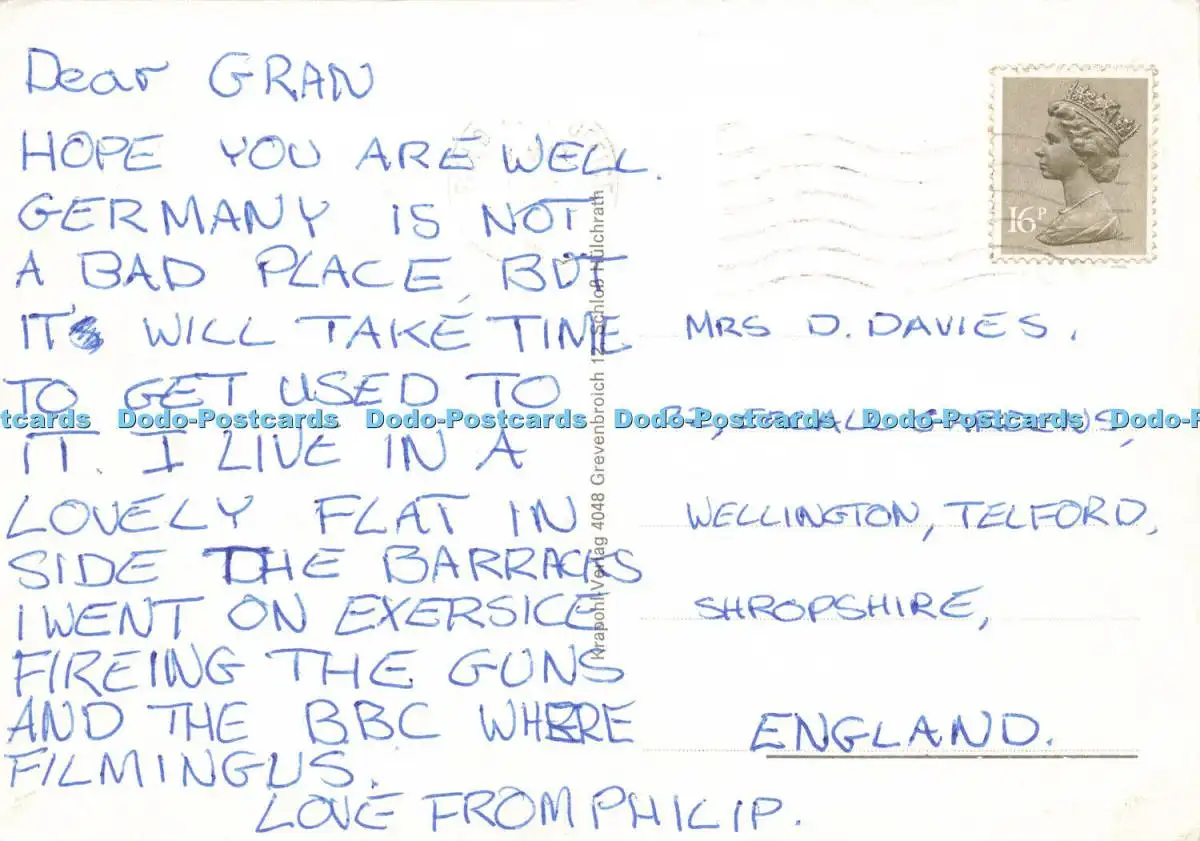 Dear GRAN
HOPE YOU ARE WELL.
GERMANY IS NOT
A BAD PLACE, BUT
IT WILL TAKE TIME
TO GET USED TO
IT. I LIVE IN A
LOVELY FLAT IN
SIDE THE BARRACKS
I WENT ON EXERSICE
FIREING THE GUNS
AND THE BBC WHERE
FILMINGUS.
LOVE FROM PHILIP.
Krapohl-Verlag 4048 Grevenbroich 12 Schloß Hülchrath
16P
MRS D. DAVIES.
GARDENS,
WELLINGTON, TELFORD,
SHROPSHIRE,
ENGLAND.
tcards Dodo-Postcards Dodo-Postcards Dodo-Postcards Dodo-Postcards Dodo-P